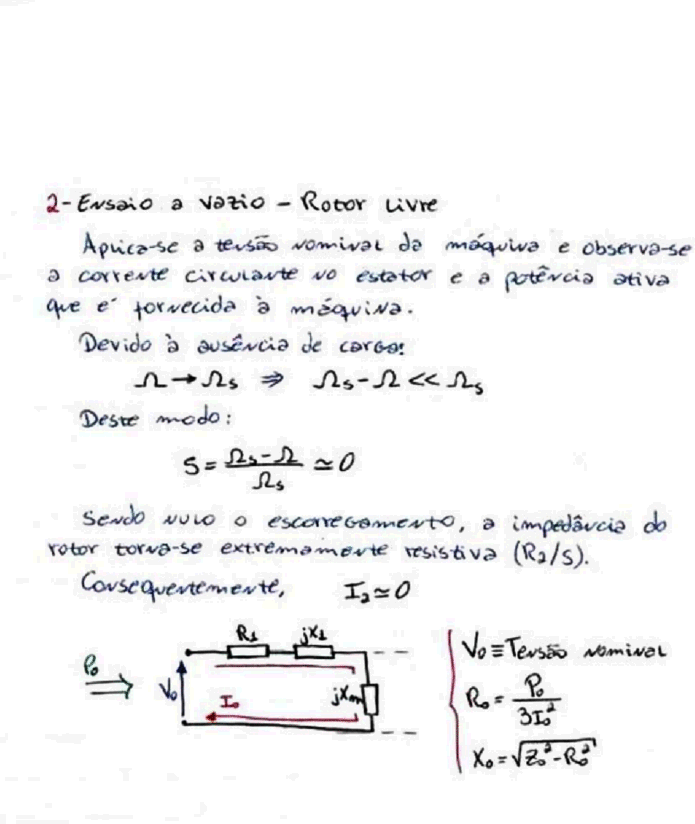 2- Ensaio a vazio - Rotor Livre
Aplica-se a tensão nominal da máquina e observa-se
a corrente circulante no estator e a potência ativa
que é fornecida à máquina.
Devido à ausência de carga:
Ω → Ωs ⇒ Ωs - Ω << Ωs
Deste modo:
S = (Ωs - Ω)/Ωs ≃ 0
Sendo nulo o escorregamento, a impedância do
rotor torna-se extremamente resistiva (R2/s).
Consequentemente, I2 ≃ 0
R1 jX1
P0
V0 I0 jXm
V0 ≡ Tensão nominal
R0 = P0/3I0²
X0 = √(Z0² - R0²)